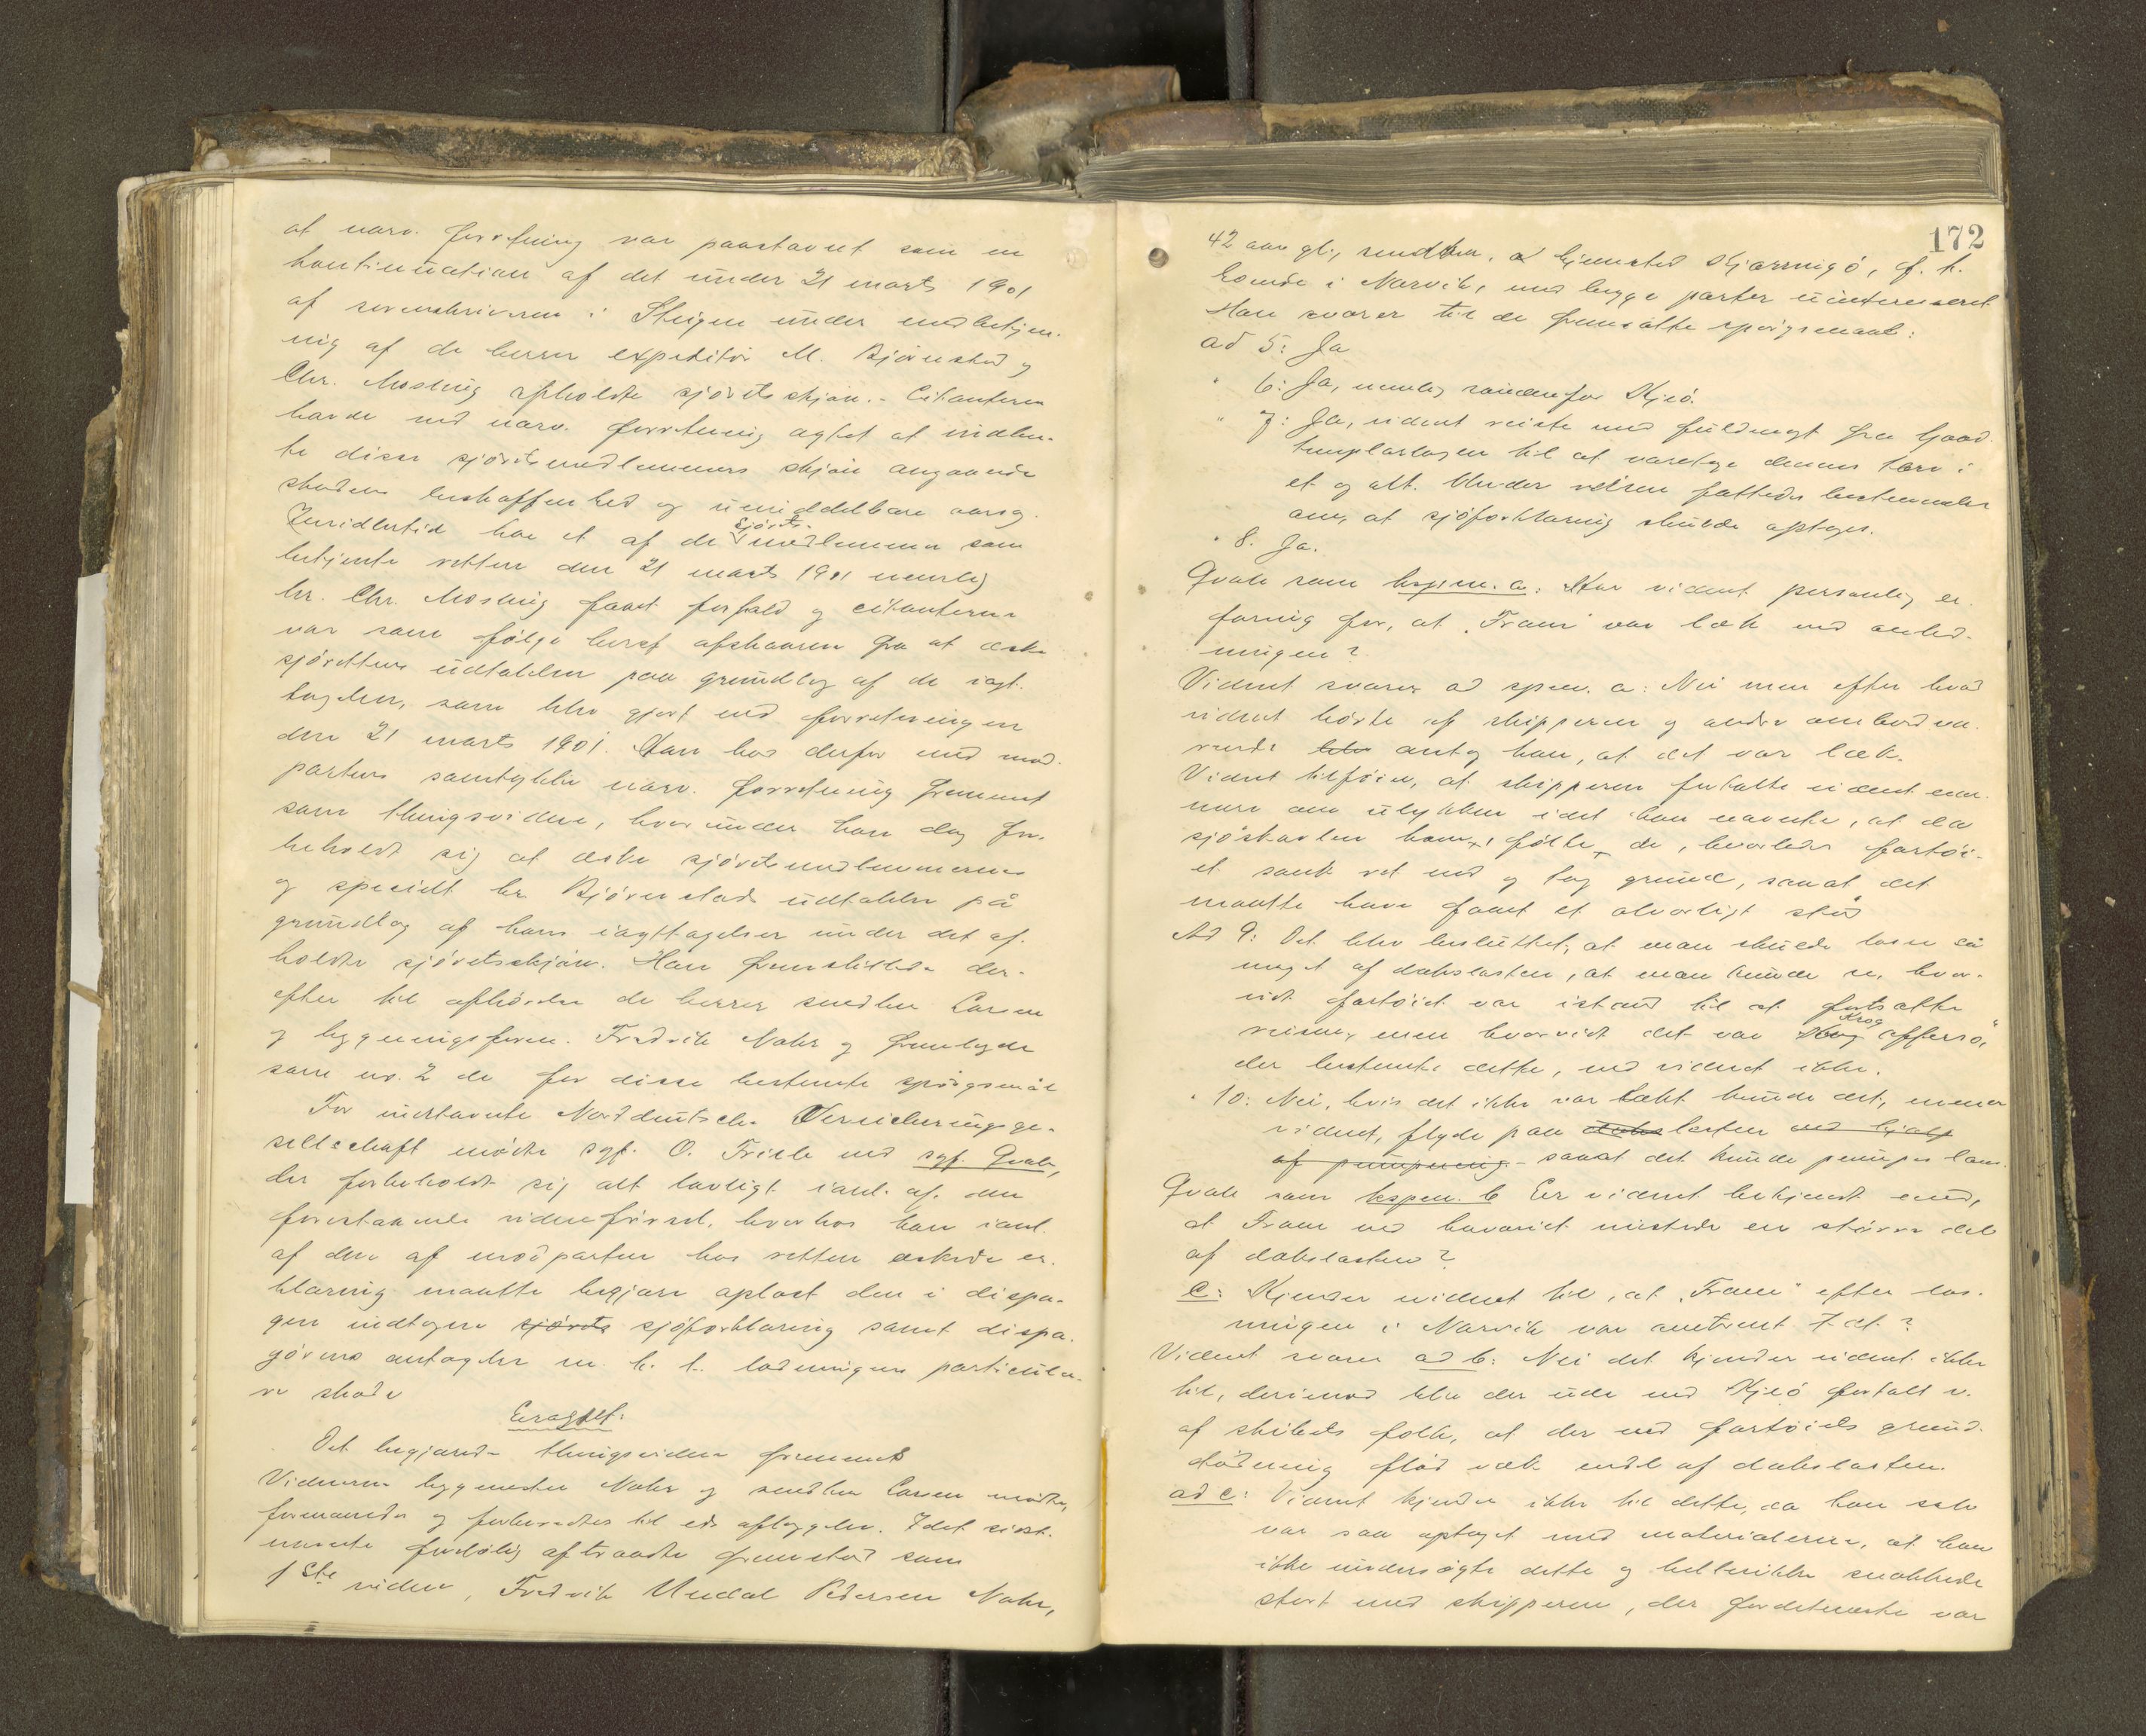 at nærv. forretning var paastævnt som en
kontinuation af det under 21 marts 1901
af sorenskriveren i Steigen under medbetjen-
ing af de herrer expeditør M. Bjørnstad og
Chr. Mosling afholdte sjøretsskjøn. - Citanterne
havde ved nærv. forretning agtet at indhen-
te disse sjøretsmedlemmers skjøn angaaende
skadens beskaffenhed og umiddelbare aarsag.
Imidlertid har et af de sjørets-medlemmer som
betjente retten den 21 marts 1901 nemlig
hr. Chr. Mosling faaet forfald og citanterne
var som følge heraf afskaaren fra at æske
sjørettens udtalelser paa grundlag af de iagt-
tagelser, som blev gjort ved forretningen
den 21 marts 1901. Han har derfor med mod-
partens samtykke nærv. forretning fremmet
som thingsvidne, hvorunder han dog for-
beholdt sig at æske sjøretsmedlemmernes
og specielt hr. Bjørnstads udtalelse på
grundlag af hans iagttagelser under det af-
holdte sjøretsskjøn. Han fremstillede der-
efter til afhørelse de herrer snedker Larsen
og bygningsform. Fredrik Nohr og fremlagde
som no. 2 de for disse bestemte spørgsmål
For indstævnte Norddeutsche Versicherungsge-
sellschaft mødte sgf. O. Friele ved sgf. Qvale,
der forbeholdt sig alt lovligt i anl. af den
forestaaende vidneførsel, hvorhos han i anl.
af den af modparten hos retten æskede er-
klæring maatte begjære oplæst den i dispa-
gen indtagne sjørets sjøforklaring samt dispa-
gørens antagelse m. h. t. ladningens particulæ-
re skade
Eragtet:
Det begjærede thingsvidne fremmes
Vidnerne bygmester Nohr og snedker Larsen mødte,
formanedes og forberedtes til eds aflæggelse. Idet sidst-
nævnte foreløbig aftraadte fremstod som
1ste vidne, Fredrik Undal Pedersen Nohr,
172
42 aar gl., snedker, hjemsted Skjærvigö, f. t.
boende i Narvik, med begge parter uinteresseret
Han svarer til de fremsatte spörgsmaal:
ad 5: Ja
" 6: Ja, nemlig søndenfor Kjeö.
" 7: Ja, vidnet reiste med fuldmagt fra Good-
templarlogen til at varetage dennes tarv i
et og alt. Under reisen fattedes bestemmelse
om, at sjöforklaring skulde optages.
" 8. Ja.
Qvale som kspm. a: Har vidnet personlig er-
faring for, at "Fram" var læk ved anled-
ningen?
Vidnet svarer ad spm. a: Nei men efter hvad
vidnet hørte af skipperen og andre ombordvæ-
rende blev antog han, at det var læk.
Vidnet tilføier, at skipperen fortalte vidnet nær-
mere om ulykken idet han nævnte, at da
sjöskavlen kom, følte de, hvorledes fartöi-
et sank ret ned og tog grund, saa at det
maatte have faaet et alvorligt stöd
Ad 9: Det blev besluttet, at man skulde losse så
meget af dækslasten, at man kunde se, hvor-
vidt fartöiet var istand til at fortsætte
reisen, men hvorvidt det var Krog
der bestemte dette, ved vidnet ikke.
" 10: Nei, hvis det ikke var lækt kunde det, mener
vidnet, flyde paa dækslasten ved hjælp
af pumpning - saaat det kunde pumpes læns.
Qvale som kspm. b Er vidnet bekjendt med,
at Fram ved havariet mistede en större del
af dækslasten?
c: Kjender vidnet til, at "Fram" efter los-
ningen i Narvik var omtrent tæt?
Vidnet svarer ad b: Nei det kjender vidnet ikke
til, derimod blev der ude ved Kjeö fortalt v.
af skibets folk, at der ved fartöiets grund-
stödning flöd væk endel af dækslasten.
ad c: Vidnet kjender ikke til dette, da han selv
var saa optaget med materialerne, at han
ikke undersögte dette og heller ikke snakkede
stort med skipperen, der fordetmeste var